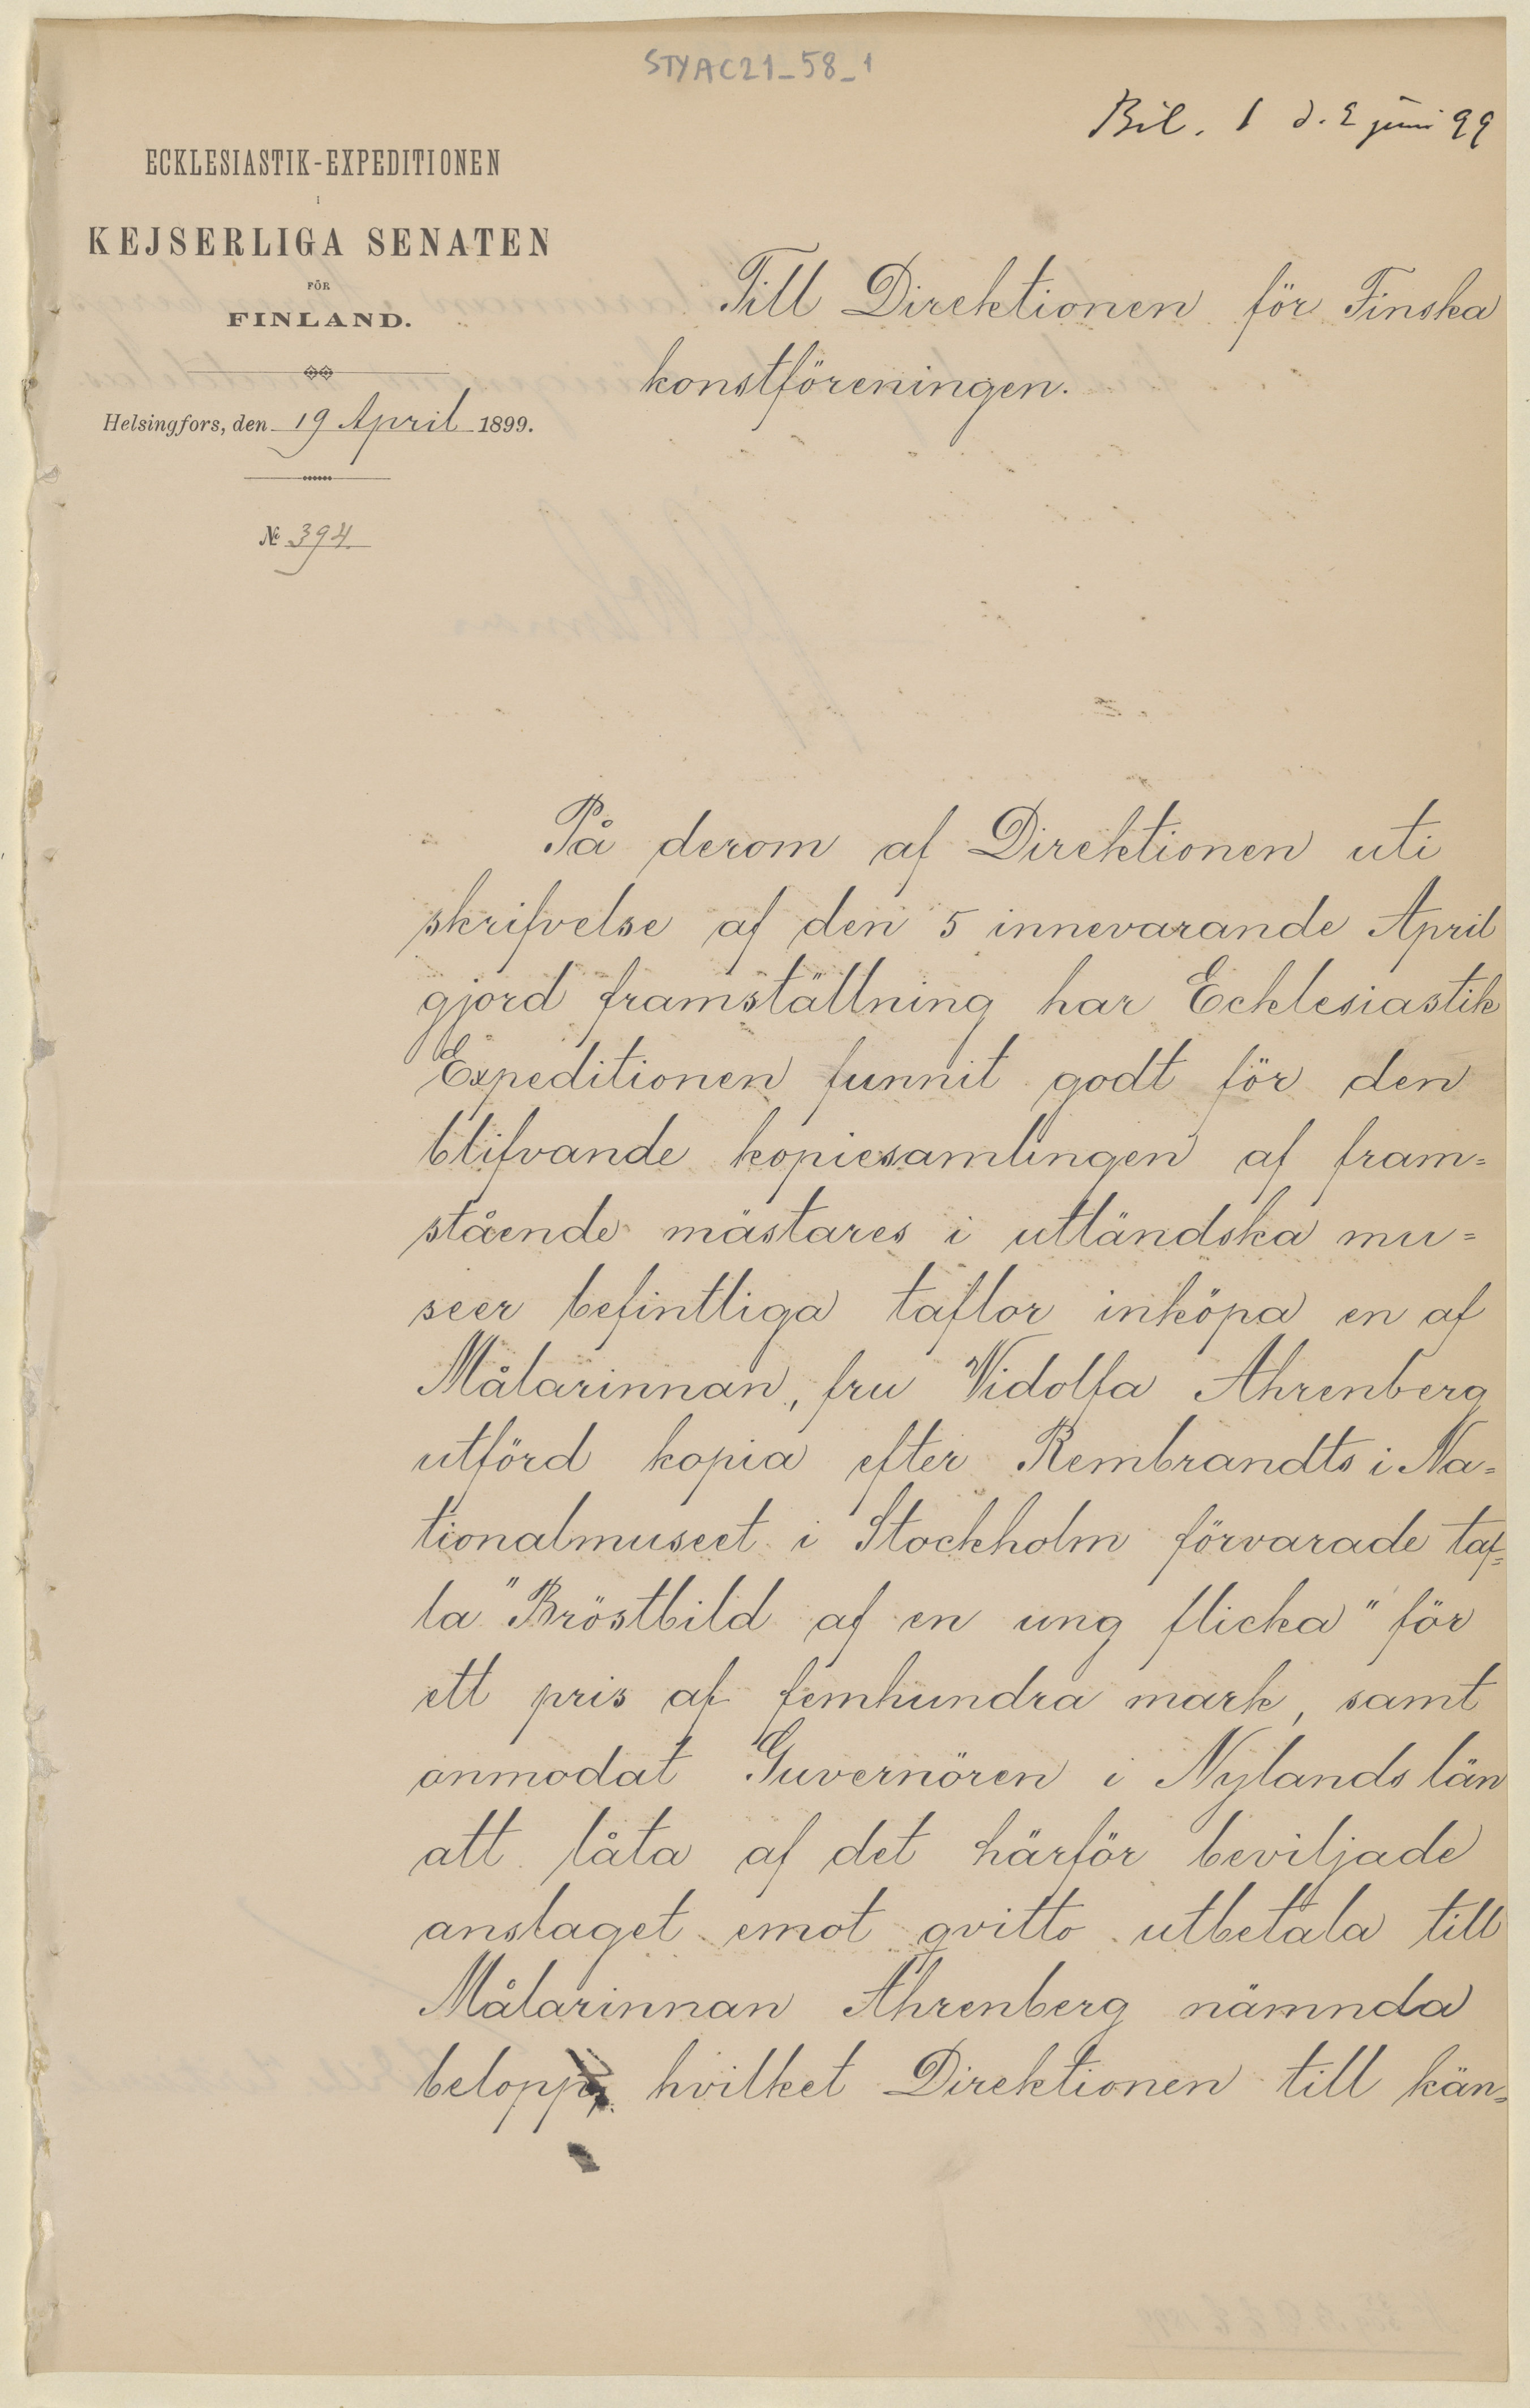 STYAC21_58_1
Bil. 1 d. 2 juni 99
ECKLESIASTIK-EXPEDITIONEN
I
KEJSERLIGA SENATEN
FÖR
FINLAND.
Helsingfors, den 19 April 1899.
№ 394
Till Direktionen för Finska
konstföreningen.
På derom af Direktionen uti
skrifvelse af den 5 innevarande April
gjord framställning har Ecklesiastik
Expeditionen funnit godt för den
blifvande kopiesamlingen af fram=
stående mästares i utländska mu=
seer befintliga taflor inköpa en af
Målarinnan, fru Vidolfa Ahrenberg
utförd kopia efter Rembrandts i Na=
tionalmuseet i Stockholm förvarade taf=
la "Bröstbild af en ung flicka" för
ett pris af femhundra mark, samt
anmodat Guvernören i Nylands län
att låta af det härför beviljade
anslaget emot qvitto utbetala till
Målarinnan Ahrenberg nämnda
belopp, hvilket Direktionen till kän=